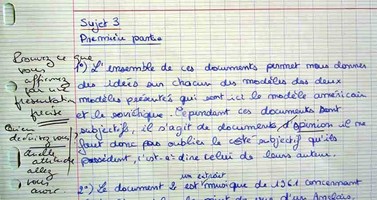 Sujet 3
Première partie
Prouvez ce que
vous
affirmez
par une
présentation
précise
1°) L'ensemble de ces documents permet nous donner
des idées sur chacun des modèles des deux
modèles présentés qui sont ici le modèle américain
et le soviétique. Cependant ces documents sont
subjectifs, il s'agit de documents d'opinion il ne
faut donc pas oublier le côté subjectif qu'ils
possèdent, c'est-à-dire celui de leurs auteurs.
vous
quelle
attitude
allez
vous
avoir
un extrait
2°) Le document 2 est musique de 1961 concernant
le point de vue d'un Anglais